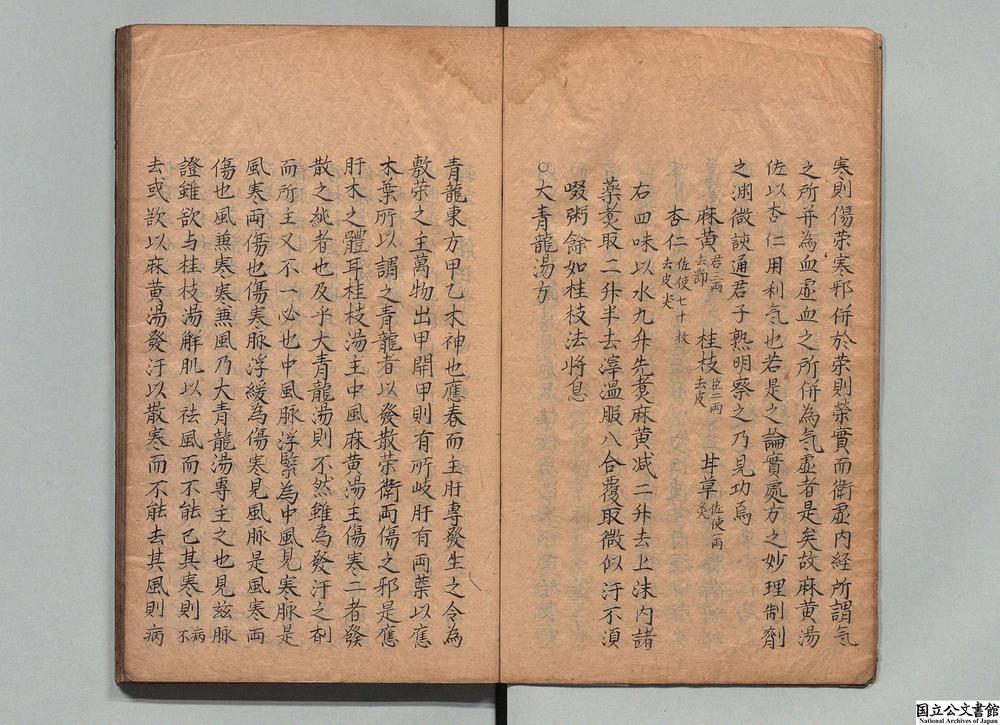 寒則傷荣寒邪併於荣則榮實而衛虛内経所謂气
之所并為血虛血之所併為气虛者是矣故麻黄湯
佐以杏仁用利气也若是之論實處方之妙理制劑
之渊微該通君子熟明察之乃見功焉
麻黄君三兩去節 桂枝臣二兩去皮 甘草佐使一兩炙
杏仁佐使七十枚去皮尖
右四味以水九升先煑麻黄减二升去上沫内諸
藥煑取二升半去滓温服八合覆取微似汗不須
啜粥餘如桂枝法将息
○大青龍湯方
青龍東方甲乙木神也應春而主肝專發生之令為
敷荣之主萬物出甲開甲則有所岐肝有两葉以應
木葉所以謂之青龍者以發散荣衛両傷之邪是應
肝木之體耳桂枝湯主中風麻黄湯主傷寒二者發
散之純者也及乎大青龍湯則不然雖為發汗之剤
而所主又不一必也中風脉浮緊為中風見寒脉是
風寒两傷也傷寒脉浮緩為傷寒見風脉是風寒両
傷也風兼寒寒兼風乃大青龍湯專主之也見兹脉
證雖欲与桂枝湯解肌以祛風而不能已其寒則病不
去或欲以麻黄湯發汗以散寒而不能去其風則病
国立公文書館
National Archives of Japan